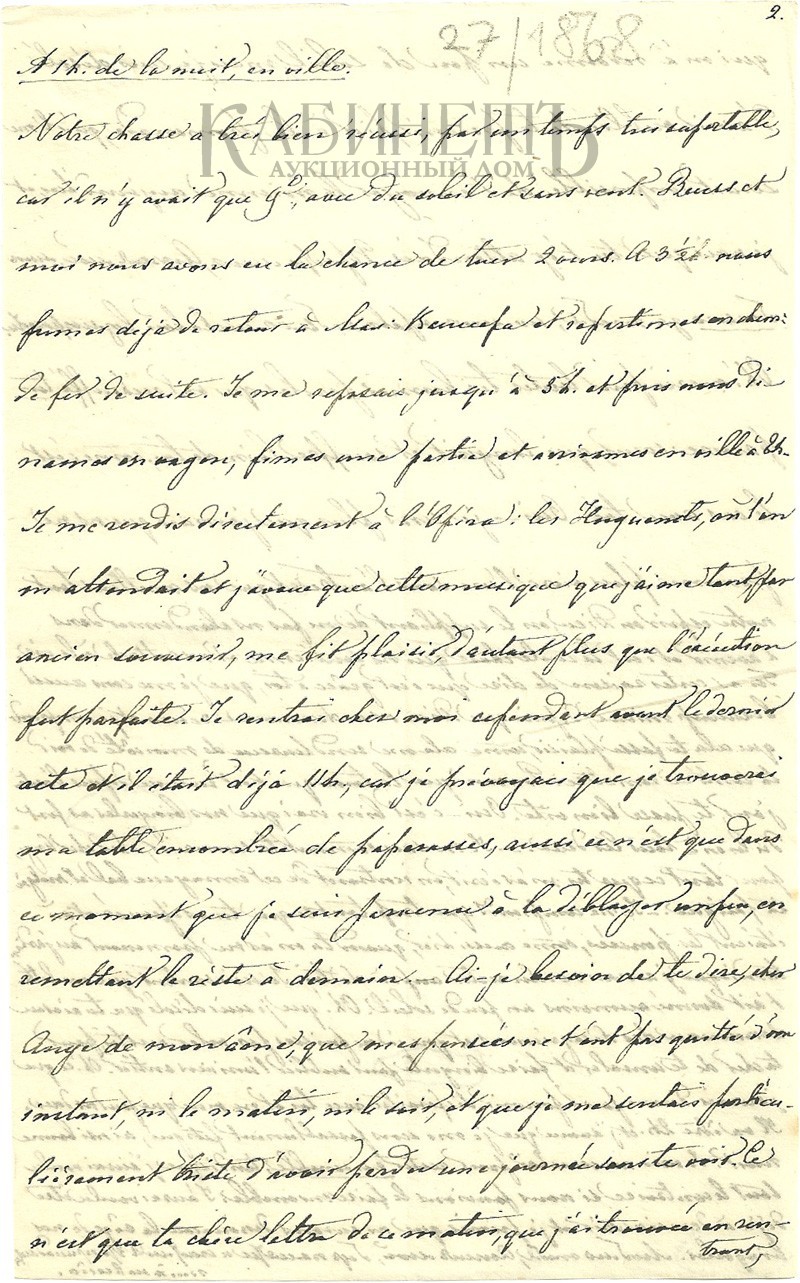 2.
27/1868
A 1 h. de la nuit, en ville.
КАБИНЕТЪ
АУКЦИОННЫЙ ДОМ
Notre chasse a très bien réussi, par un temps très suportable,
car il n'y avait que 9°, avec du soleil et sans vent. Reuss et
moi nous avons eu la chance de tuer 2 ours. A 3 ½ nous
fumes déjà de retour à et repartimes en chem:
de fer de suite. Je me reposais jusqu'à 5 h. et puis nous di
names en vagon, fimes une partie et arrivames en ville à 8 h.
Je me rendis directement à l'Opéra: les Huguenots, où l'on
m'attendait et j'avoue que cette musique que j'aime tant, par
ancien souvenir, me fit plaisir, d'autant plus que l'exécution
fut parfaite. Je rentrai chez moi cependant avant le dernier
acte et il était déjà 11 h., car je prévoyais que je trouverai
ma table encombrée de paperasses, aussi ce n'est que dans
ce moment que je suis parvenu à la déblayer un peu, en
remettant le reste à demain. Ai-je besoin de te dire, cher
Ange de mon âme, que mes pensées ne t'ont pas quitté d'un
instant, ni le matin, ni le soir, et que je me sentais particu-
lièrement triste d'avoir perdu une journée sans te voir. Ce
n'est que ta chère lettre de ce matin, que j'ai trouvée en ren-
trant,